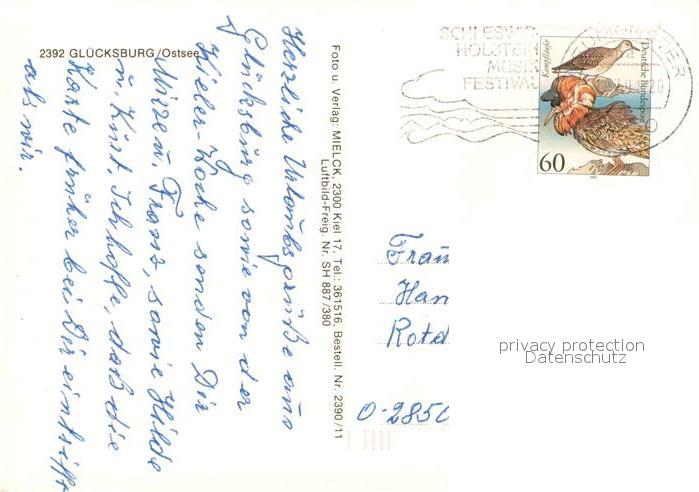 2392 GLÜCKSBURG/Ostsee
Herzliche Urlaubsgrüße aus
Glücksburg sowie von der
Kieler-Woche senden Dir
Mizzen. Franz, sowie Hilde
u. Kurt. Ich hoffe, daß die
Karte früher bei Dir eintrifft
als wir.
Foto u. Verlag: MIELCK, 2300 Kiel 17, Tel.: 361516, Bestell. Nr. 2390/11
Luftbild-Freig. Nr. SH 887/380
SCHLESWIG
HOLSTEIN
MUSIK
FESTIVAL
Kampfläufer
Deutsche Bundespost
60
Frau
Han
Rotd
O-2850
privacy protection
Datenschutz